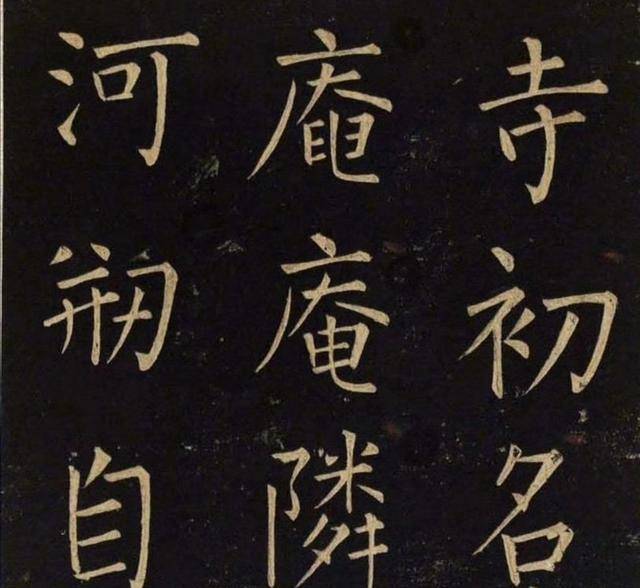 寺初名
庵庵隣
河剏自